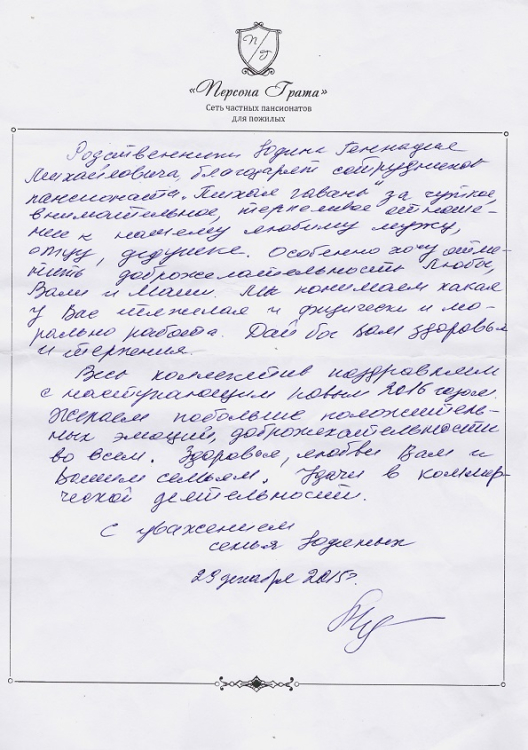 П/Г
«Персона Грата»
Сеть частных пансионатов
для пожилых
Родственники Юдина Геннадия
Михайловича, благодарят сотрудников
пансионата „Тихая гавань" за чуткое,
внимательное, терпеливое отноше-
ние к нашему любимому мужу,
отцу, дедушке. Особенно хочу отме-
тить доброжелательность Любы,
Вали и Маши. Мы понимаем какая
у Вас тяжелая и физически и мо-
рально работа. Дай бог Вам здоровья
и терпения.
Весь коллектив поздравляем
с наступающим новым 2016 годом.
Желаем побольше положитель-
ных эмоций, доброжелательности
во всем. Здоровья, любви Вам и
Вашим семьям. Удачи в коммер-
ческой деятельности.
С уважением
семья Юдиных
29 декабря 2015г.